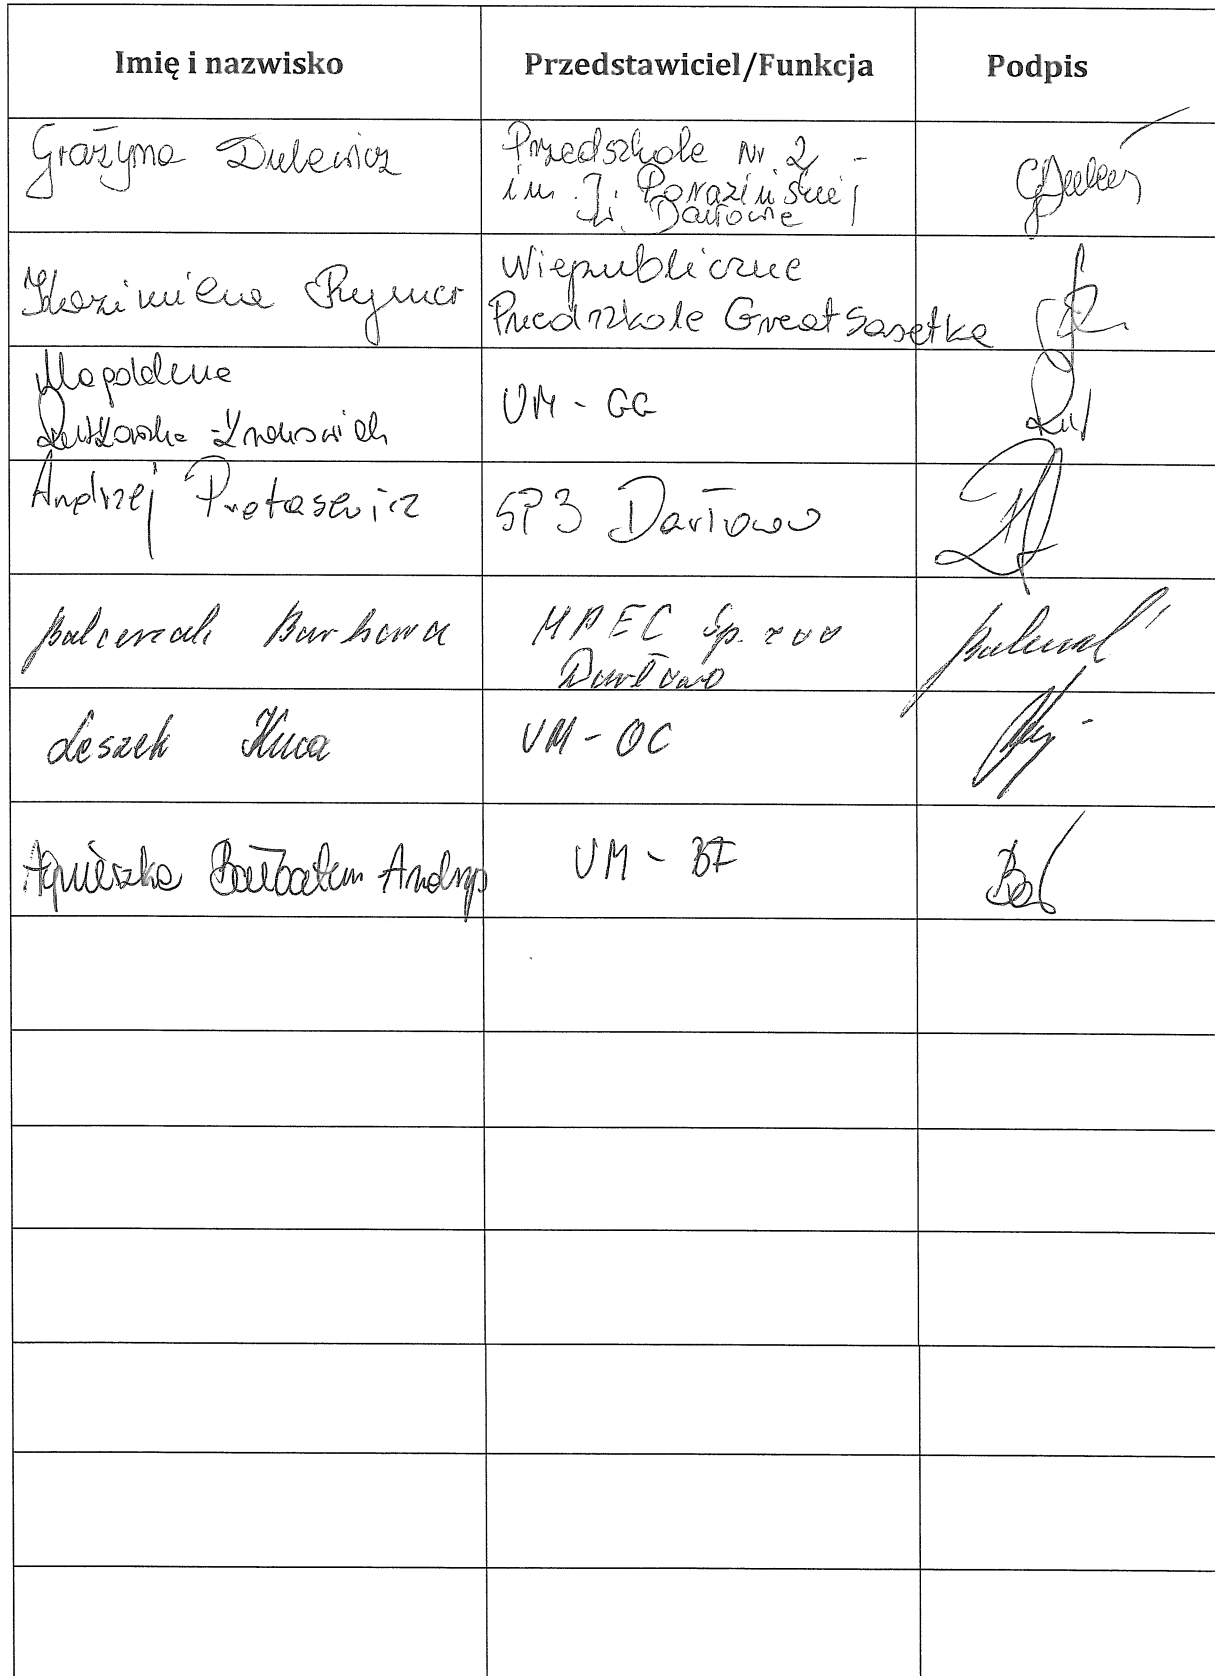 Imię i nazwisko Przedstawiciel/Funkcja Podpis
Grażyna Dulewicz Przedszkole Nr 2
im. J. Porazińskiej
Darłowie
Kazimiera Rymer Niepubliczne
Przedszkole Great Sasetka
Magdalena
UM - GG
Andrzej Protasewicz SP3 Darłowo
Balcerzak Barbara MPEC Sp. z o o
Darłowo
Leszek Kuca UM - OC
Agnieszka UM - BF